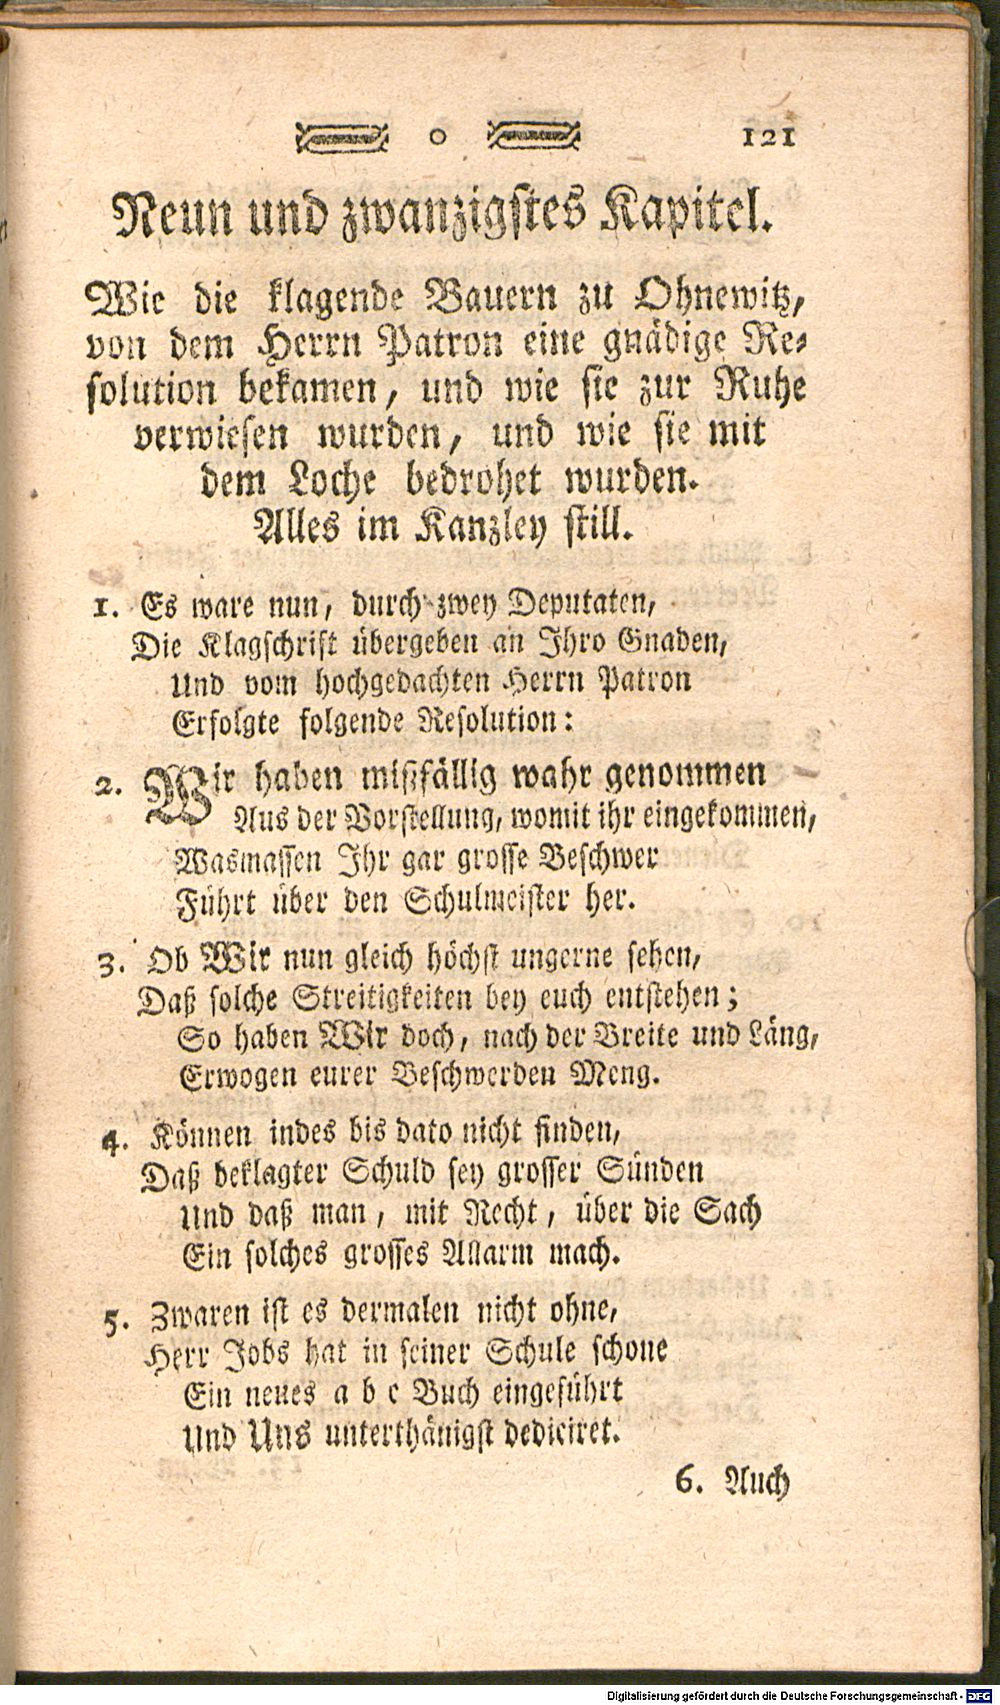 o 121
Neun und zwanzigstes Kapitel.
Wie die klagende Bauern zu Ohnewitz,
von dem Herrn Patron eine gnädige Re-
solution bekamen, und wie sie zur Ruhe
verwiesen wurden, und wie sie mit
dem Loche bedrohet wurden.
Alles im Kanzley still.
1. Es ware nun, durch zwey Deputaten,
Die Klagschrift übergeben an Ihro Gnaden,
Und vom hochgedachten Herrn Patron
Erfolgte folgende Resolution:
2. Wir haben mißfällig wahr genommen
Aus der Vorstellung, womit ihr eingekommen,
Wasmassen Ihr gar grosse Beschwer
Führt über den Schulmeister her.
3. Ob Wir nun gleich höchst ungerne sehen,
Daß solche Streitigkeiten bey euch entstehen;
So haben Wir doch, nach der Breite und Läng,
Erwogen eurer Beschwerden Meng.
4. Können indes bis dato nicht finden,
Daß beklagter Schuld sey grosser Sünden
Und daß man, mit Recht, über die Sach
Ein solches grosses Allarm mach.
5. Zwaren ist es dermalen nicht ohne,
Herr Jobs hat in seiner Schule schone
Ein neues a b c Buch eingeführt
Und Uns unterthänigst dediciret.
6. Auch
Digitalisierung gefördert durch die Deutsche Forschungsgemeinschaft - DFG